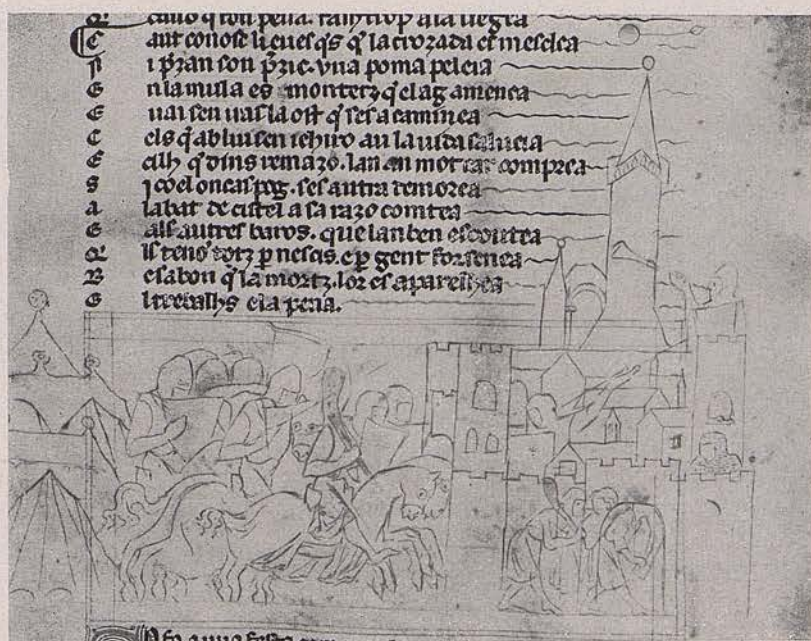 C ant conosc li eues q's q la crozada es mesclea
N i pzan son pzic. vna poma peleia
E n la mula es montetz q el ag amenea
E uai sen uas la ost q ses acaminea
C els q ab lui sen iehiro an la uida saluea
E cilh q dins remazo. lan an mot car comprea
S i co el oncas pog. ses autra demorea
A labat de cistel a sa razo comtea
E als autres baros. que lan ben escoutea
Q ls teno totz p nescis. e p gent forsenea
B e sabon q la mortz. lor es aparelhea
E l trebalhs e la pena.